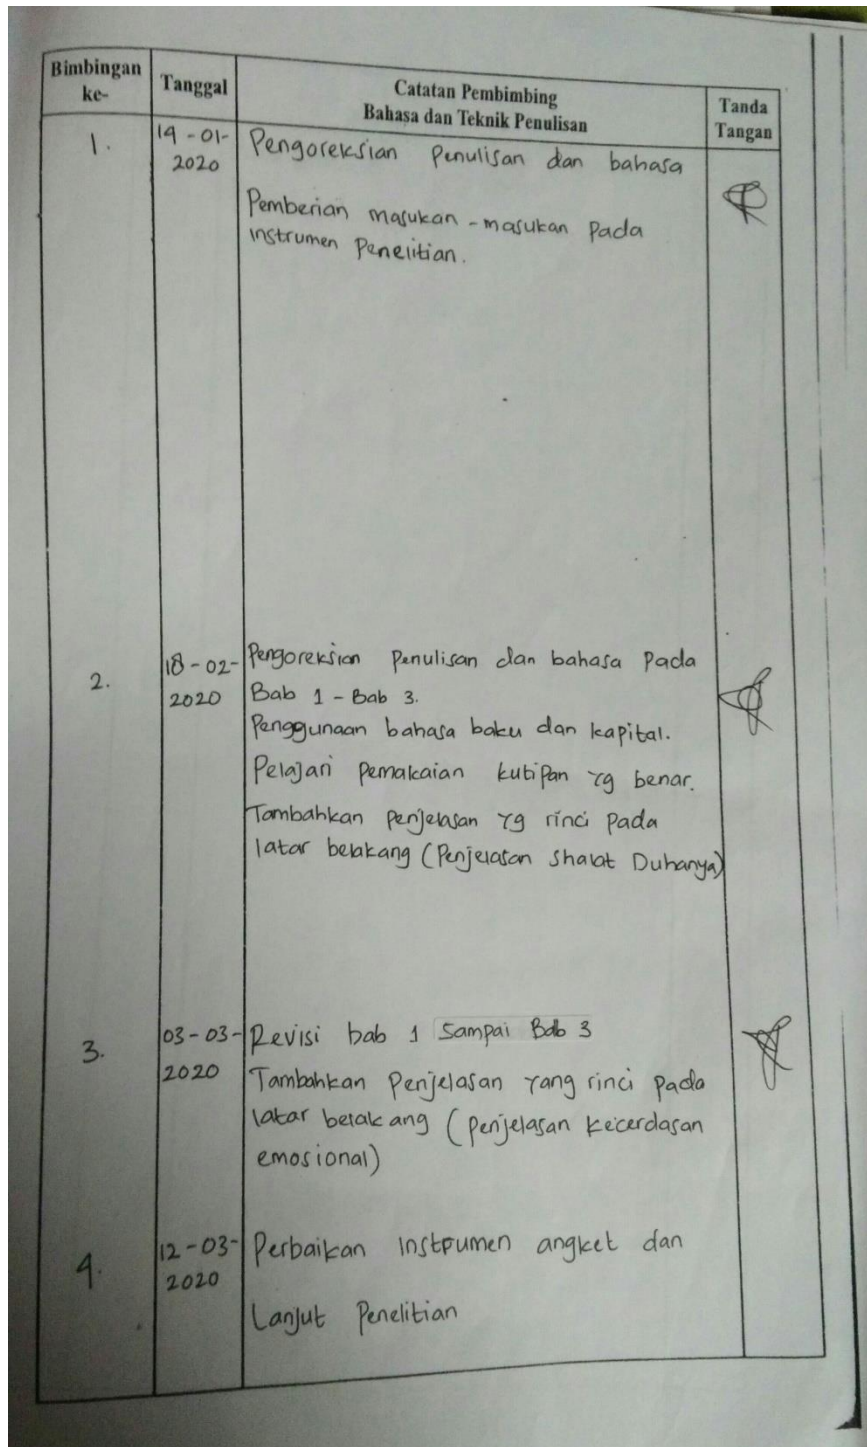 Bimbingan ke-
Tanggal
Catatan Pembimbing
Bahasa dan Teknik Penulisan
Tanda Tangan
1.
14-01-
2020
Pengoreksian Penulisan dan bahasa
Pemberian masukan-masukan pada
instrumen Penelitian.
2.
18-02-
2020
Pengoreksian Penulisan dan bahasa pada
Bab 1 - Bab 3.
Penggunaan bahasa baku dan kapital.
Pelajari pemakaian kutipan yg benar.
Tambahkan penjelasan yg rinci pada
latar belakang (Penjelasan Shalat Duhanya)
3.
03-03-
2020
Revisi bab 1 Sampai Bab 3
Tambahkan Penjelasan yang rinci pada
latar belakang (penjelasan kecerdasan
emosional)
4.
12-03-
2020
Perbaikan instrumen angket dan
Lanjut Penelitian